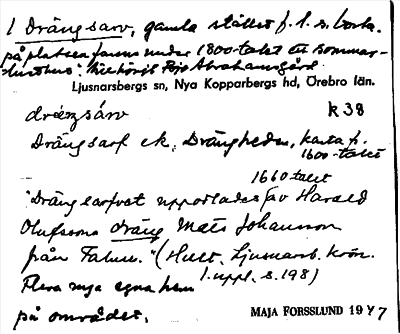 1 Drängsarv, gamla stället f. l. s. borta.
på platsen fanns under 1800-talet ett sommar-
Ljusnarsbergs sn, Nya Kopparbergs hd, Örebro län.
drä̀ŋsárv K38
Drängsarf ek, Drängheden, karta fr.
1600-talet
1660 talet
"Drängsarfvet upporlades av Harald
Olufssons dräng Mats Johansson
från Falun." (Hult, Ljusnarsb. krön.
1. uppl. s. 198)
Flera nya egna hem
på området.
MAJA FORSSLUND 1947